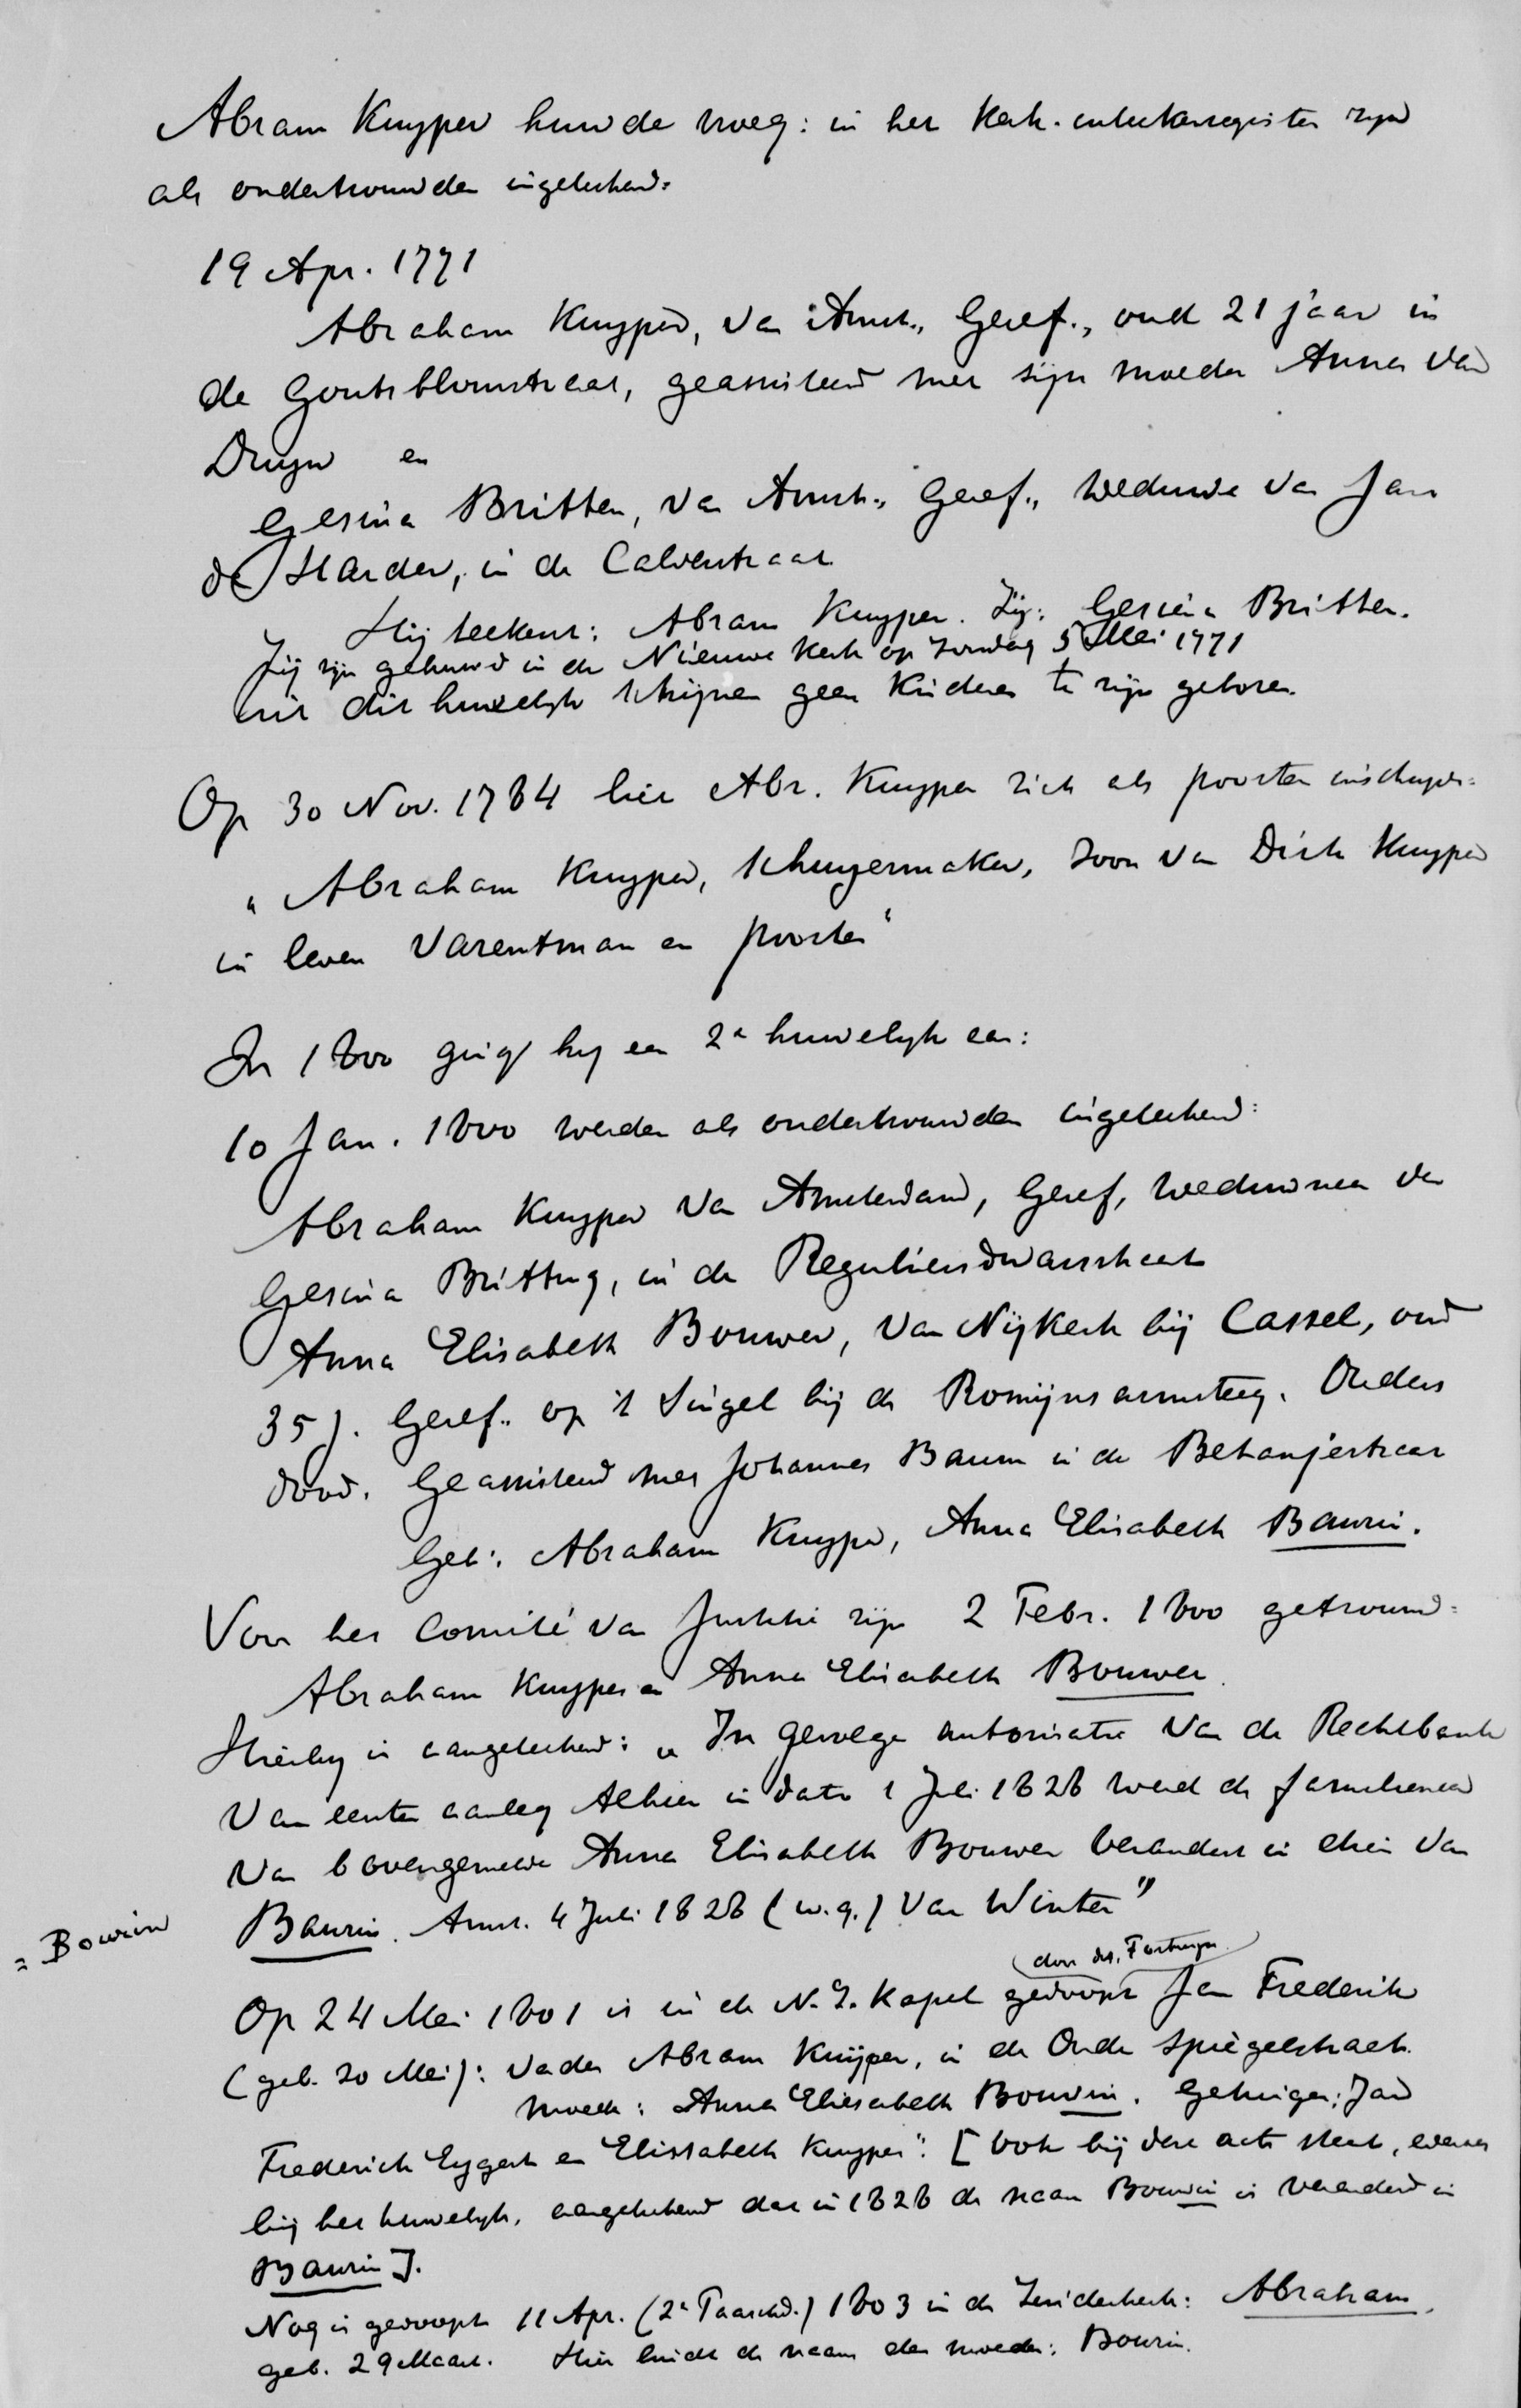 Abram Kuyper huwde vroeg: in het Kerk. ontrekenregister zijn
als ondertrouwden ingetekend:
19 Apr. 1771
Abraham Kuyper, van Amst., Geref., oud 21 jaar in
de Goutsblomstraat, geassisteerd met sijn moeder Anna van
Druyn en
Gesina Britten, van Amst., Geref., Weduwe van Jan
de Harder, in de Calverstraat
Hij teekent: Abram Kuyper. Zij: Gesina Britten.
Zij zijn gehuwd in de Nieuwe Kerk op Zondag 5 Mei 1771
uit dit huwelijk schijnen geen kinderen te zijn geboren.
Op 30 Nov. 1784 liet Abr. Kuyper zich als poorter inschrijven:
„Abraham Kuyper, Schuyermaker, Zoon van Dirk Kuyper
in leven Varentman en poorter"
In 1800 ging hij een 2e huwelijk aan:
10 Jan. 1800 werden als ondertrouwden ingetekend:
Abraham Kuyper van Amsterdam, Geref, Weduwnaar van
Gesina Britting, in de Reguliersdwarsstraat
Anna Elisabeth Bouwer, van Nijkerk bij Cassel, oud
35 j. Geref. op 't Singel bij de Romijnsarmsteeg. Ouders
dood. Geassisteerd met Johannes Baum in de Bethanjestraat
Get: Abraham Kuyper, Anna Elisabeth Baurin.
Voor het Comité van Justitie zijn 2 Febr. 1800 getrouwd:
Abraham Kuyper en Anna Elisabeth Bouwer
Hierbij is aangetekend: „In gevolge autorisatie van de Rechtbank
Van eersten aanleg Alhier in dato 1 Juli 1828 werd de familienaam
van bovengemelde Anna Elisabeth Bouwer verandert in dien van
Baurin. Amst. 4 Juli 1828 (w.g.) Van Winter"
= Bowrin
(door ds.
Op 24 Mei 1801 is in de N.Z. Kapel gedoopt Jan Frederik
(geb. 20 Mei): Vader Abram Kuijper, in de Oude Spiegelstraat.
moeder: Anna Eliesabeth Bouwin. Getuigen: Jan
Frederich Eygert en Elissabeth Kuyper": [Ook bij deze acte staat, evenals
bij het huwelijk, aangetekend dat in 1828 de naam Bouwin is veranderd in
Baurin].
Nog is gedoopt 11 Apr. (2e Paaschd.) 1803 in de Zuiderkerk: Abraham,
geb. 29 Maart. Hier luidt de naam der moeder: Bourin.